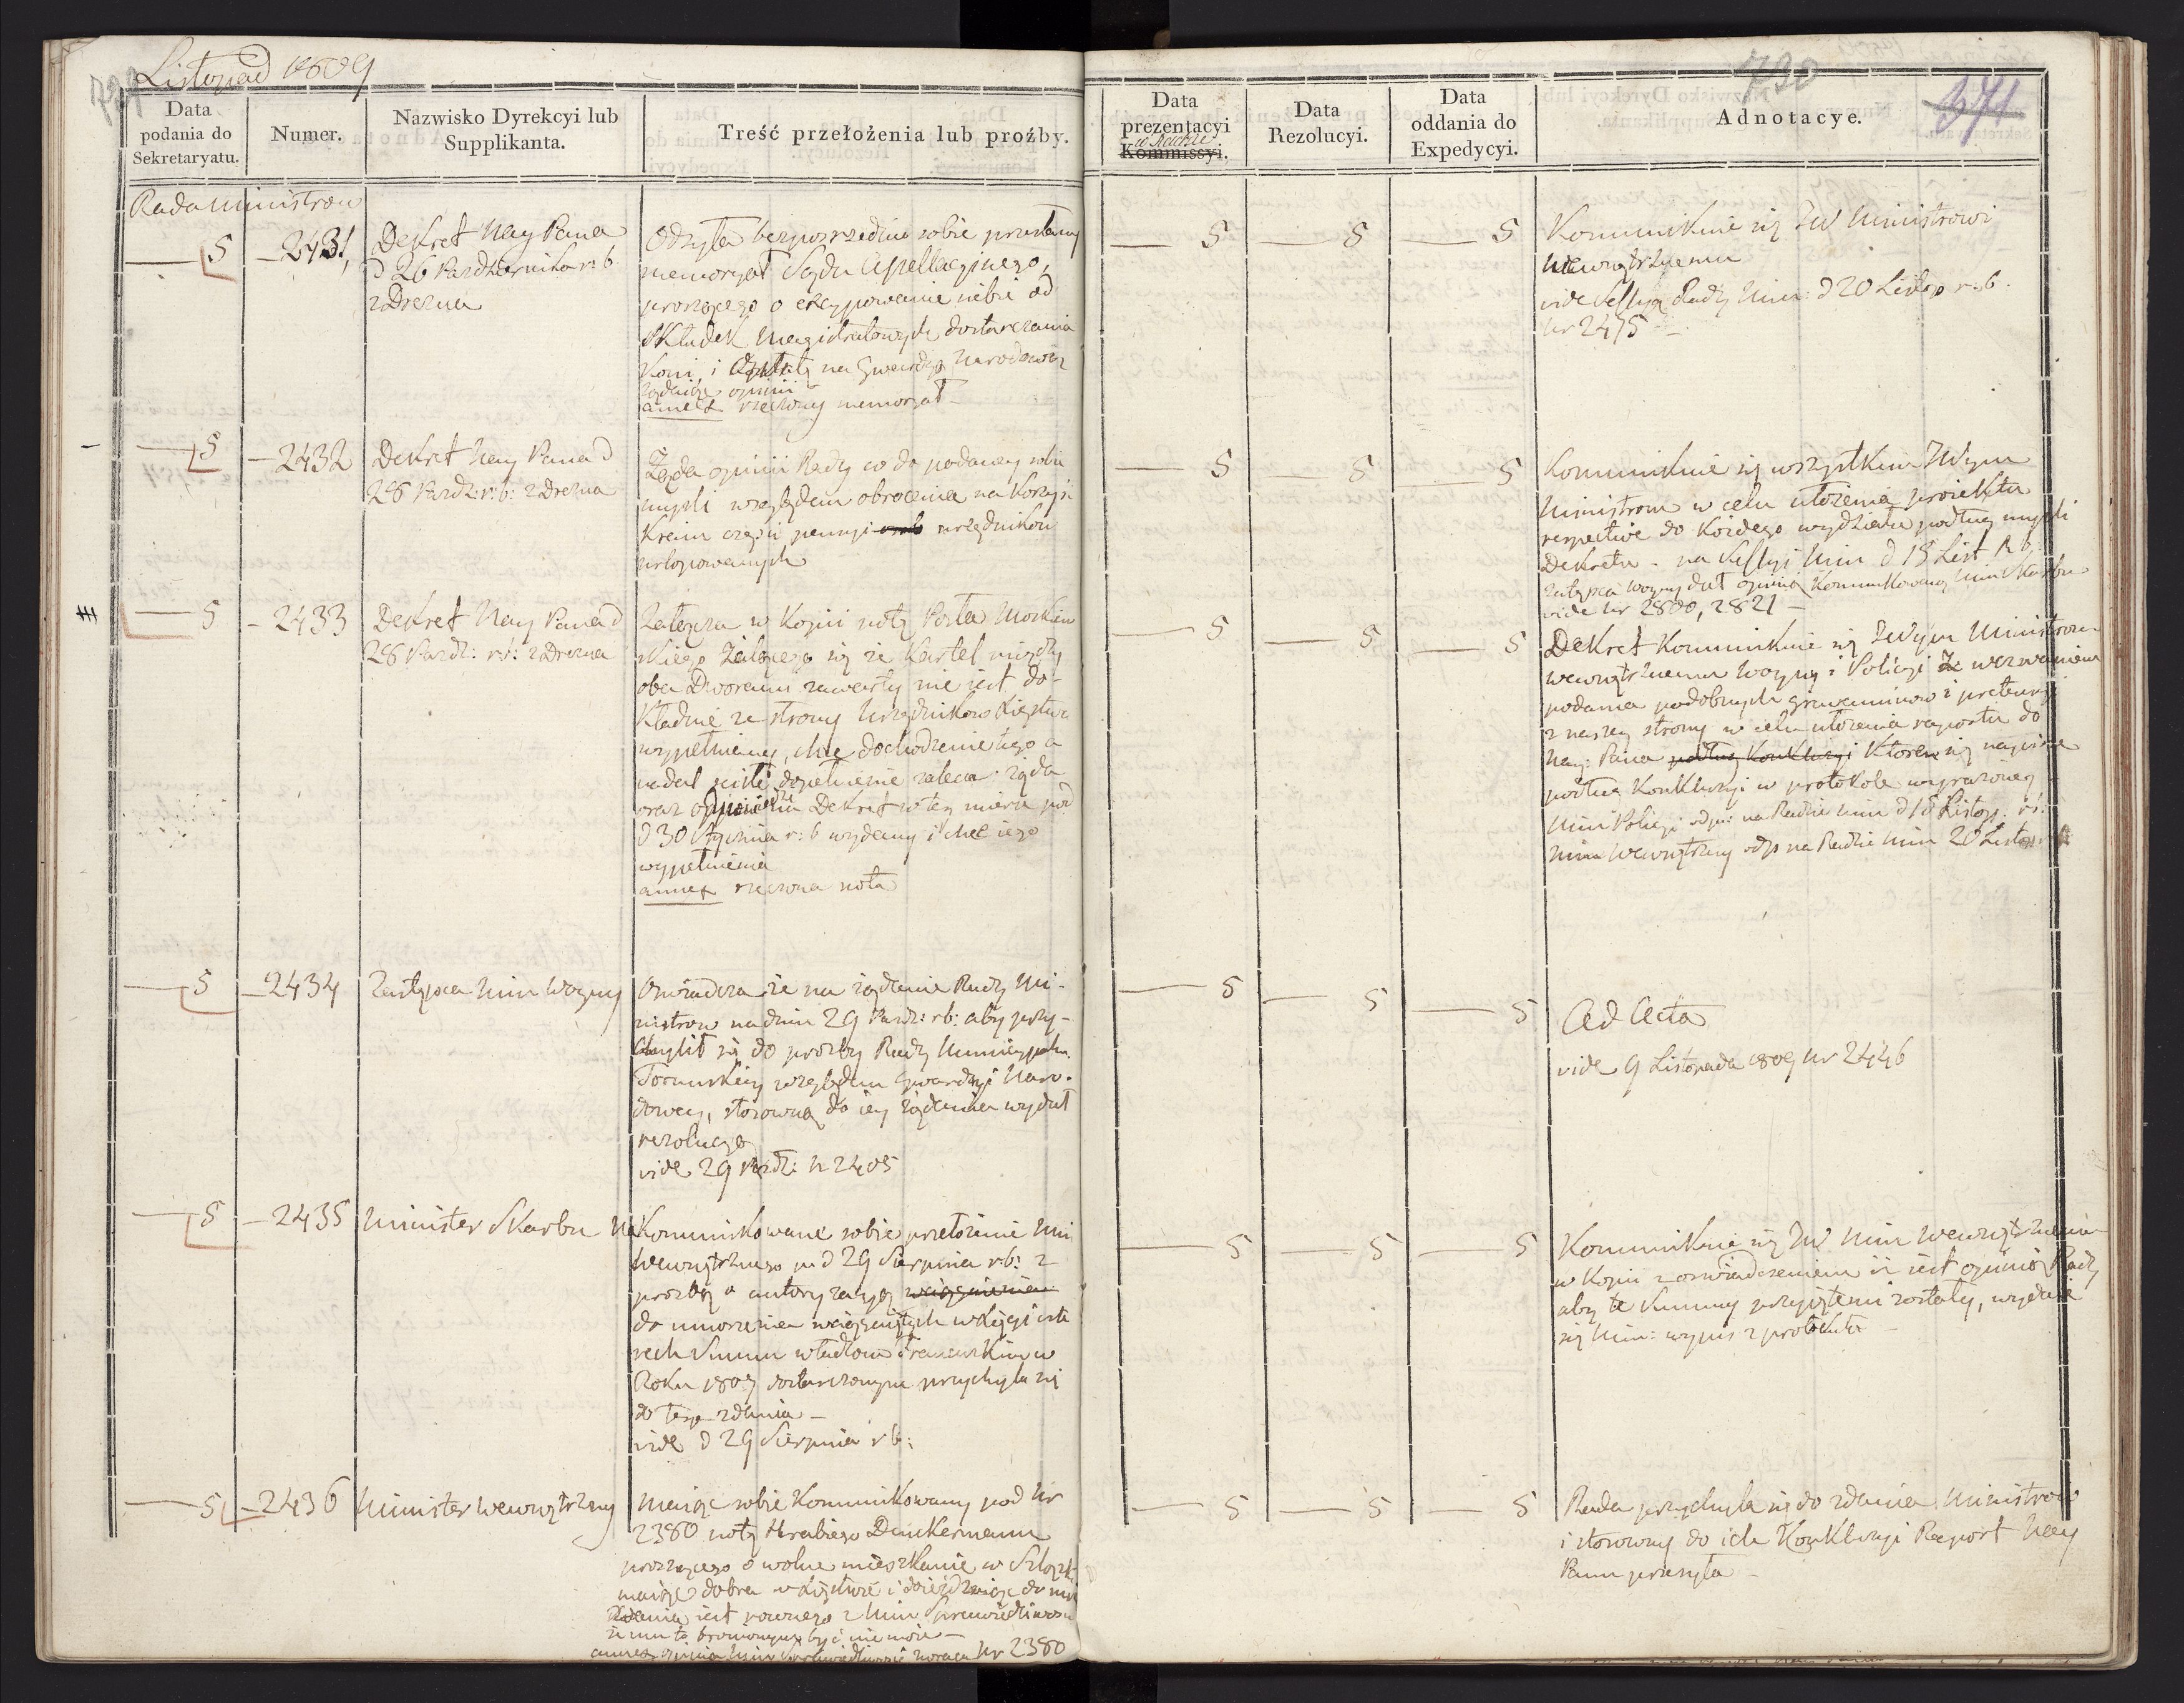 Listopad 1809
729
Data
podania do
Sekretaryatu.
Numer.
Nazwisko Dyrekcyi lub
Supplikanta.
Treść przełożenia lub proźby.
Rada Ministrow
5
2431,
Dekret Nay Pana
d 26 Pazdziernika r: b
z Drezna
Odsyła bezposrzednio sobie przesłany
memoryał Sądu Apellacyinego,
proszącego o excypowanie siebie od
składek Magistratowych, dostarczania
Koni, i opłaty na Gwardyą Narodową
żądaiąc opinii
annex rzeczony memoryał
5
2432
Dekret Nay Pana d
26 Pazdz: r: b: z Drezna
Żąda opinii Rady co do podaney sobie
mysli względem obrocenia na korzyść
Kraiu części pensyi urzędnikow
urlopowanych
5
2433
Dekret Nay Pana d
28 Pazdz: r: b: z Drezna
Załącza w Kopii notę Posła Moskiew
skiego żalącego się że Kartel między
oba Dworami zawarty nie iest do-
kładnie ze strony Urzędnikow Xięstwa
wypełniany, chce dochodzenia tego a
nadal scisłe dopełnienie zaleca: żąda
oraz Dekret w tey mierze pod
d 30 Stycznia r: b wydany i chce iego
wypełnienia
annex rzeczona nota
5
2434
Zastępca Min Woyny
Oswiadcza że na żądanie Rady Mi-
nistrow na dniu 29 Pazdz: rb: aby przy-
chylił się do prozby Rady Municypaln.
Torunskiey względem Gwardyi Naro-
dowey, stosowną do iey żądania wydał
rezolucyą
vide 29 Pazdz: N 2405
5
2435
Minister Skarbu
Kommunikowane sobie przełożenie Min
Wewnętrznego pod 29 Sierpnia rb: z
prozbą o autoryzacyą
do umorzenia zaciągniętych
Summ władzom Francuzkim w
Roku 1807 dostarczonym przychyla się
do tego zdania
vide d 29 Sierpnia rb:
5
2436
Minister Wewnętrzny
Maiąc sobie Kommunikowany pod Nr
2380 notę Hrabiego Danckermann
proszącego o wolne mieszkanie w Szląsku
maiąc dobra w Xięstwie i
zdania iest rownego z Min Sprawiedliwosci
że mu to bronionym być nie może
annex opinia Min Sprawiedliwosci zwraca Nr 2380
730
371
Data
prezentacyi
w Radzie
Kommissyi.
Data
Rezolucyi.
Data
oddania do
Expedycyi.
Adnotacye.
5
5
5
Kommunikuie się JW Ministrowi
Wewnętrznemu
vide Sessyą Rady Min: d 20 Listop r. b.
Nr 2475
5
5
5
Kommunikuie się wszystkim JWym
Ministrom w celu ułożenia proiektu
respective do każdego wydziału podług mysli
Dekretu. na Sessyi Min d 18 List R b,
Zastępca Woyny dał opinią Kommunikowaną Min Skarbu
vide Nr 2800, 2821
5
5
5
Dekret Kommunikuie się JWym Ministrom
Wewnętrznemu Woyny i Policyi z wezwaniem
podania podobnych grawaminow i pretensyi
z naszey strony w celu ułożenia raportu do
Nay: Pana podług Konkluzyi ktoren się napisze
podług Konkluzyi w protokole wyrażoney
Min Policyi odp: na Radzie Min d 18 Listop. r b.
Min Wewnętrzny odp na Radzie Min 20 Listop r b
5
5
5
Ad Acta
vide 9 Listopada 1809 Nr 2446
5
5
5
Kommunikuie się JW Min Wewnętrznemu
w Kopii z oswiadczeniem iż iest opinią Rady
aby te Summy przyiętemi zostały, wydaie
się Min: wypis z protokułu
5
5
5
Rada przychyla się do zdania Ministrow
i stosowny do ich Konkluzyi Raport Nay
Panu przesyła